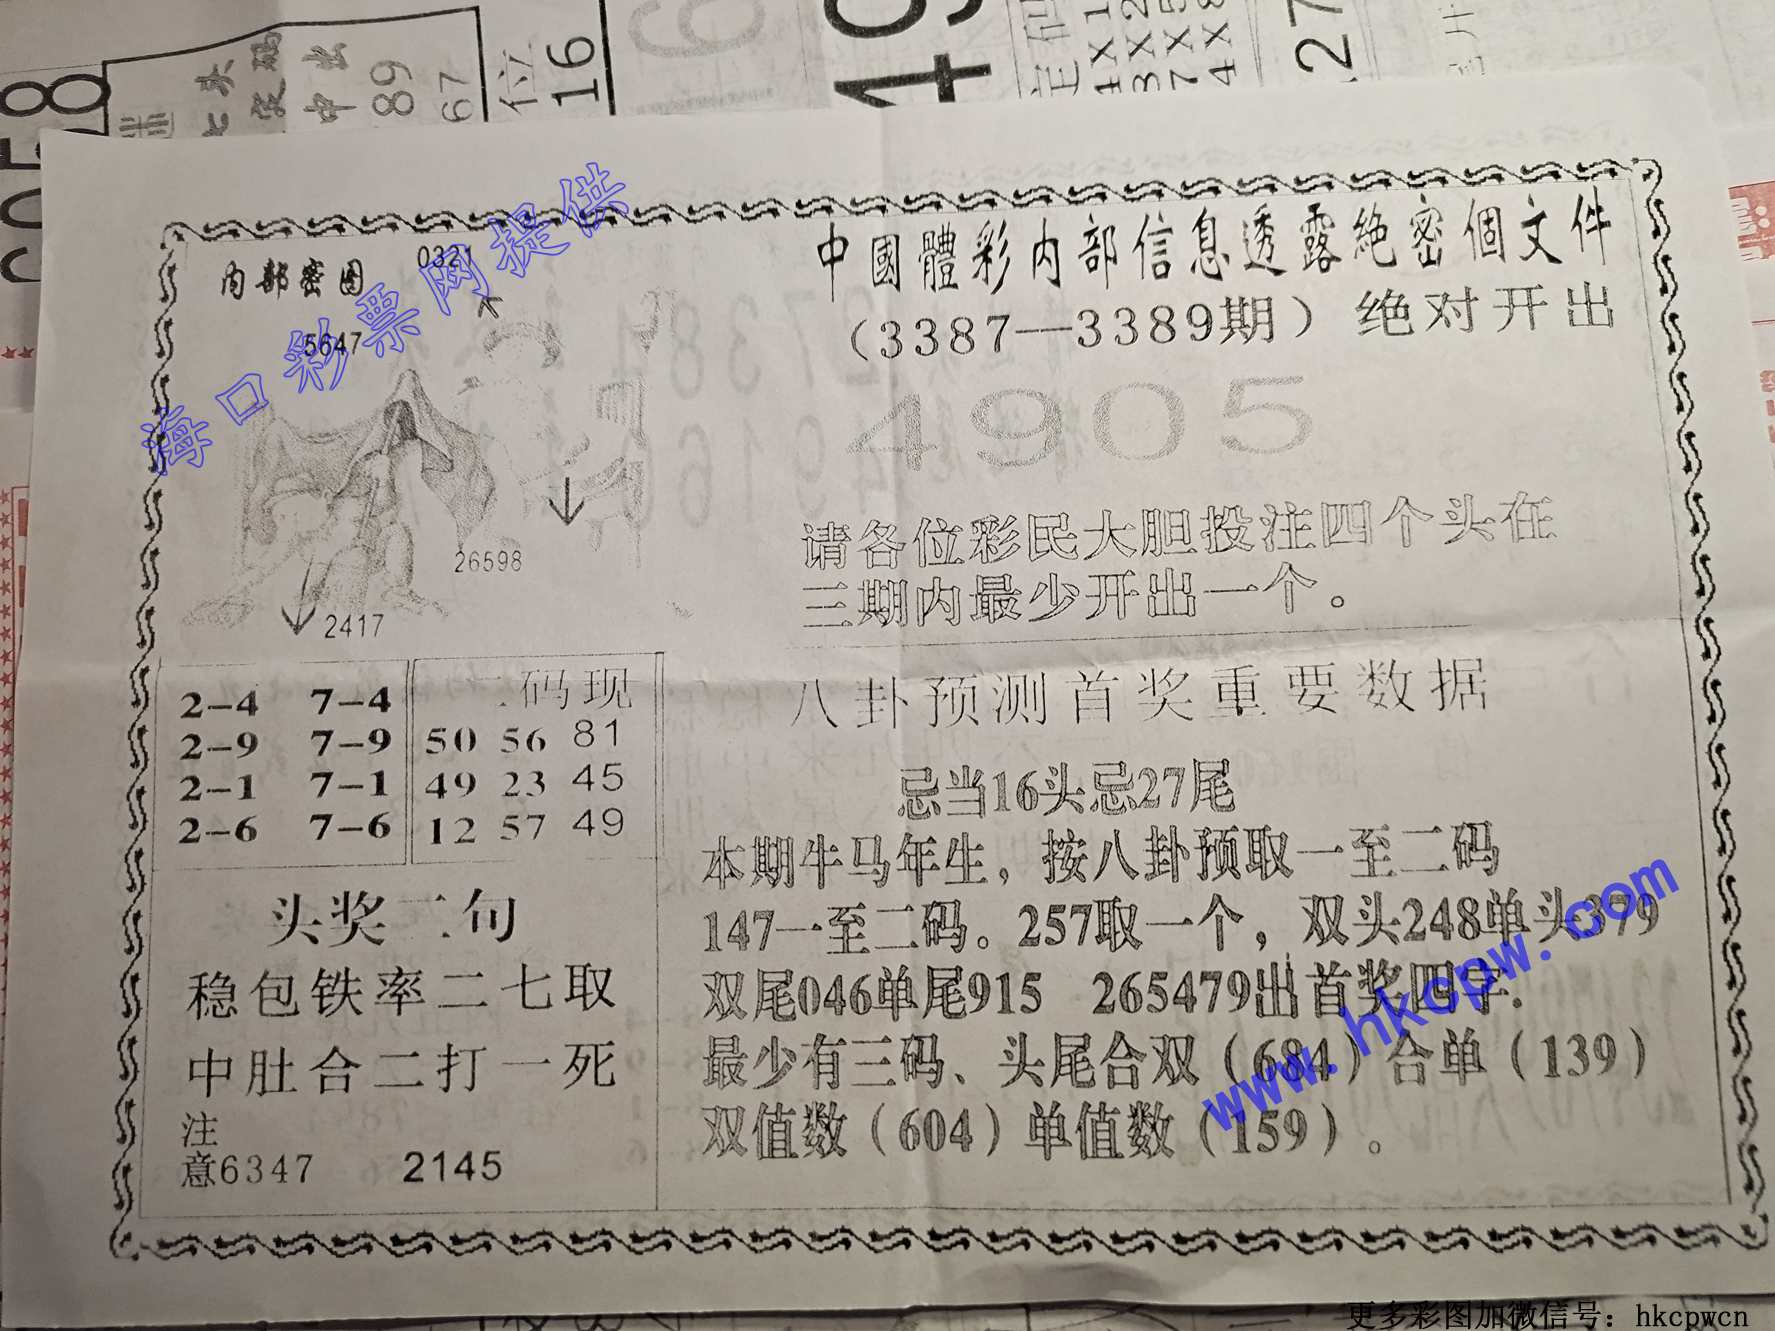 七头
中出
89
67
位
16
19
定位
1X1
3X2
7X5
4X8
27
海口彩票网提供
内部密图
0321
5647
26598
2417
中國體彩内部信息透露絶密個文件
（3387—3389期）绝对开出
4905
请各位彩民大胆投注四个头在
三期内最少开出一个。
2-4 7-4
2-9 7-9
2-1 7-1
2-6 7-6
二码现
50 56 81
49 23 45
12 57 49
头奖二句
稳包铁率二七取
中肚合二打一死
注
意6347 2145
八卦预测首奖重要数据
忌当16头忌27尾
本期牛马年生，按八卦预取一至二码
147一至二码。257取一个，双头248单头379
双尾046单尾915 265479出首奖四字.
最少有三码、头尾合双（684）合单（139）
双值数（604）单值数（159）。
www.hkcpw.com
更多彩图加微信号：hkcpwcn